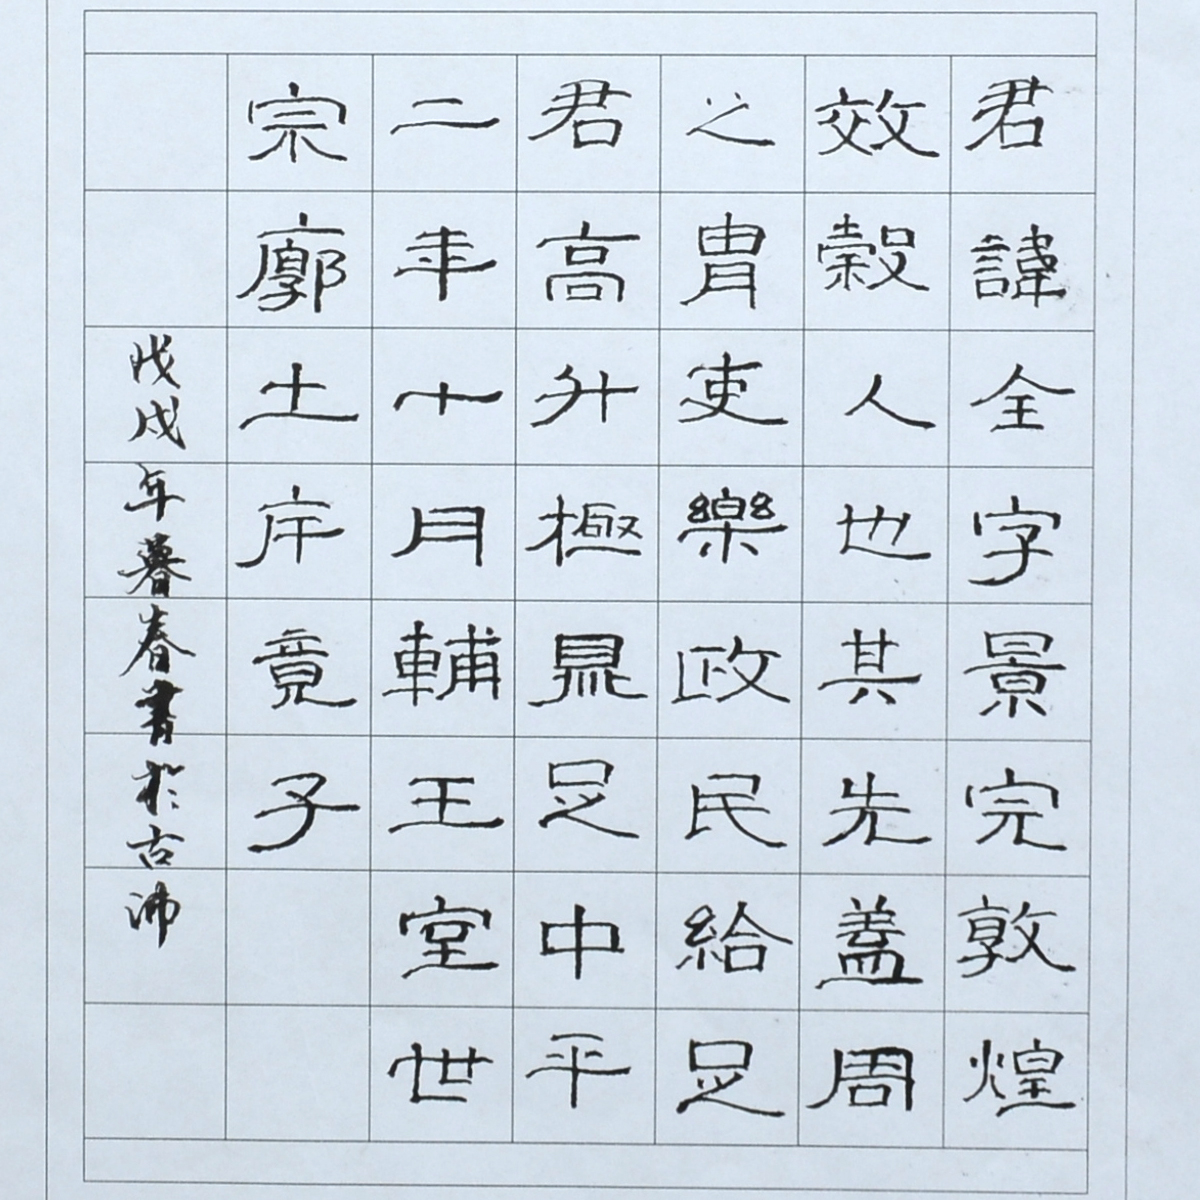 君諱全字景完敦煌
效穀人也其先蓋周
之胄吏樂政民給足
君高升極鼎足中平
二年十月輔王堂世
宗廓土序竟子
戊戌年暮春書於古沛